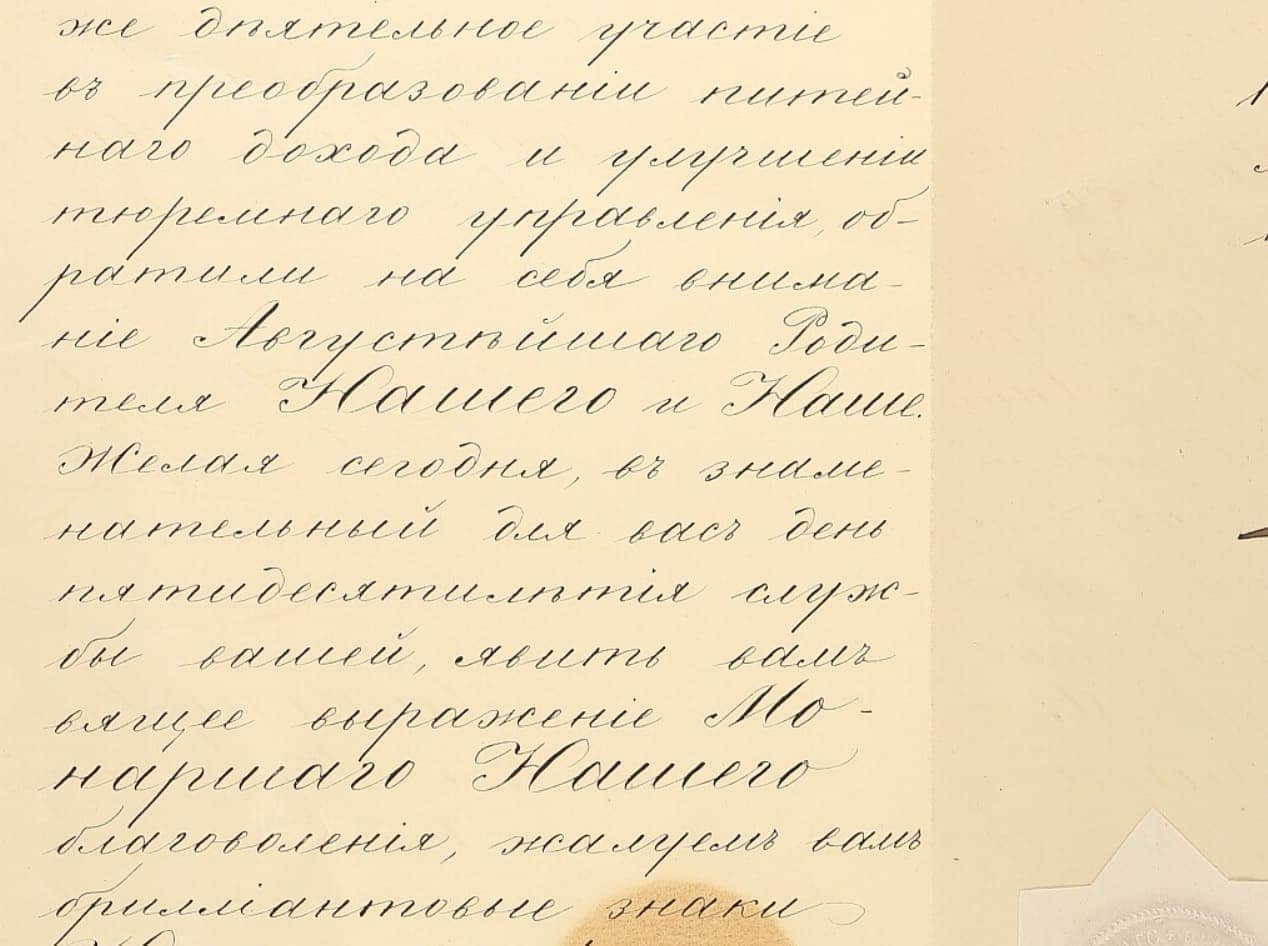 же дѣятельное участіе
въ преобразованіи питей-
наго дохода и улучшеніи
тюремнаго управленія, об-
ратили на себя внима-
ніе Августѣйшаго Роди-
теля Нашего и Наше.
Желая сегодня, въ знаме-
нательный для васъ день
пятидесятилѣтія служ-
бы вашей, явить вамъ
вящее выраженіе Мо-
наршаго Нашего
благоволенія, жалуемъ вамъ
брилліантовые знаки